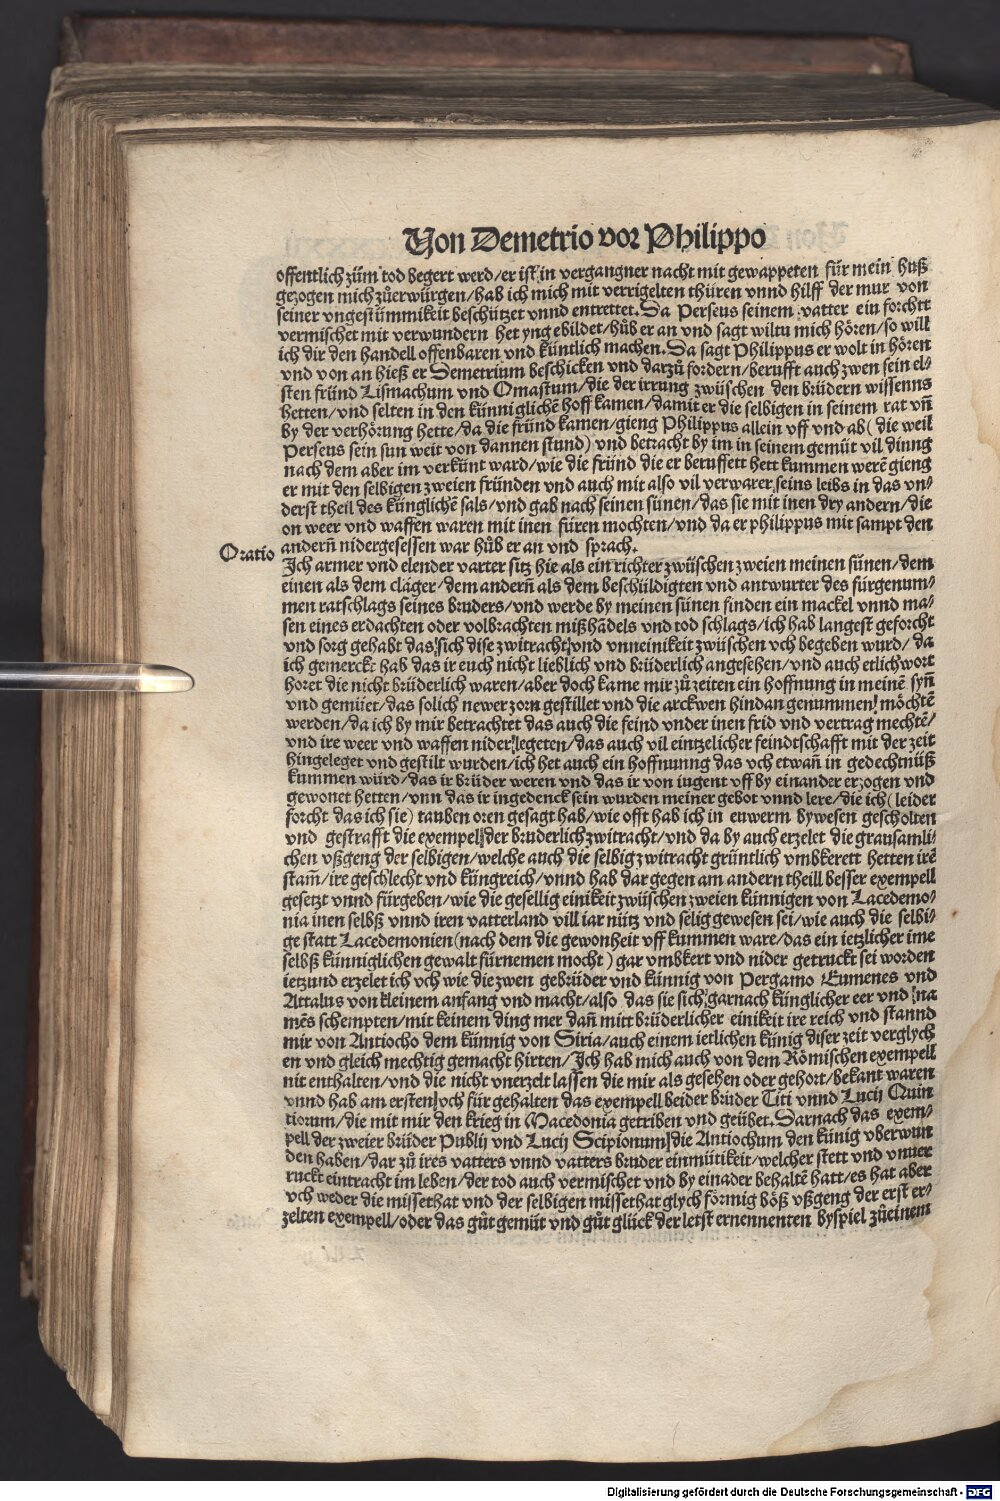 Von Demetrio vor Philippo
offentlich zům tod begert werd/er ist in vergangner nacht mit gewappeten für mein huß
gezogen mich zůerwürgen/hab ich mich mit verrigelten thüren vnnd hilff der mur von
seiner vngestümmikeit beschützet vnnd entrettet. Da Perseus seinem vatter ein forchtt
vermischet mit verwundern het yngebildet/hůb er an vnd sagt wiltu mich hören/so will
ich dir den handell offenbaren vnd küntlich machen. Da sagt Philippus er wolt in hören
vnd von an hieß er Demetrium beschicken vnd darzů fordern/berufft auch zwen sein el⸗
sten fründ Lismachum vnd Omastum/die der irrung zwüschen den brüdern wissenns
hetten/vnd selten in den künniglichē hoff kamen/damit er die selbigen in seinem rat vn̄
by der verhörung hette/da die fründ kamen/gieng Philippus allein vff vnd ab( die weil
Perseus sein sun weit von dannen stund) vnd betracht by im in seinem gemüt vil dinng
nach dem aber im verkünt ward/wie die fründ die er beruffett hett kummen werē gieng
er mit den selbigen zweien fründen vnd auch mit also vil verwarer seins leibs in das vn⸗
derst theil des künglichē sals/vnd gab nach seinen sünen/das sie mit inen dry andern/die
on weer vnd waffen waren mit inen füren mochten/vnd da er philippus mit sampt den
Oratio andern̄ nidergesessen war hůb er an vnd sprach.
Ich armer vnd elender vatter sitz hie als ein richter zwüschen zweien meinen sünen/dem
einen als dem cläger/dem andern̄ als dem beschüldigten vnd antwurter des fürgenum⸗
men ratschlags seines bruders/vnd werde by meinen sünen finden ein mackel vnnd ma⸗
sen eines erdachten oder volbrachten mißhādels vnd tod schlags/ich hab langest geforcht
vnd sorg gehabt das sich dise zwitracht vnd vnneinikeit zwüschen vch begeben wurd/ da
ich gemerckt hab das ir euch nicht lieblich vnd brüderlich angesehen/vnd auch etlich wort
horet die nicht brüderlich waren/aber doch kame mir zů zeiten ein hoffnung in meinē syn̄
vnd gemüet/das solich newer zorn gestillet vnd die arckwen hindan genummen möchtē
werden/da ich by mir betrachtet das auch die feind vnder inen frid vnd vertrag mechtē/
vnd ire weer vnd waffen nider legeten/das auch vil eintzelicher feindtschafft mit der zeit
hingeleget vnd gestilt wurden/ich het auch ein hoffnunng das vch etwan̄ in gedechtnüß
kummen würd/das ir brüder weren vnd das ir von iugent vff by einander erzogen vnd
gewonet hetten/vnn das ir ingedenck sein wurden meiner gebot vnnd lere/die ich ( leider
forcht das ich sie) tauben oren gesagt hab/wie offt hab ich in euwerm bywesen gescholten
vnd gestrafft die exempel der bruderlich zwitracht/vnd da by auch erzelet die grausamli⸗
chen vßgeng der selbigen/welche auch die selbig zwitracht grüntlich vmbkerett hetten irē
stam̄/ire geschlecht vnd küngreich/vnnd hab dar gegen am andern theill besser exempell
gesetzt vnnd fürgeben/wie die gesellig einikeit zwüschen zweien künnigen von Lacedemo⸗
nia inen selbß vnnd iren vatterland vill iar nütz vnd selig gewesen sei/wie auch die selbi⸗
ge statt Lacedemonien(nach dem die gewonheit vff kummen ware/das ein ietzlicher ime
selbß künniglichen gewalt fürnemen mocht ) gar vmbkert vnd nider getruckt sei worden
ietzund erzelet ich vch wie die zwen gebrüder vnd künnig von Pergamo Eumenes vnd
Attalus von kleinem anfang vnd macht/also das sie sich garnach künglicher eer vnd na
mēs schempten/mit keinem ding mer dan̄ mitt brüderlicher einikeit ire reich vnd stannd
mir von Antiocho dem künnig von Siria/auch einem ietlichen künig diser zeit verglych
en vnd gleich mechtig gemacht hirten/Ich hab mich auch von dem Römischen exempell
nit enthalten/vnd die nicht vnerzelt lassen die mir als gesehen oder gehort/bekant waren
vnnd hab am ersten vch für gehalten das exempell beider brüder Titi vnnd Lucij Quin
tiorum/die mit mir den krieg in Macedonia getriben vnd geübet. Darnach das exem⸗
pell der zweier brüder Publij vnd Lucij Scipionum die Antiochum den künig vberwun
den haben/dar zů ires vatters vnnd vatters bruder einmütikeit/welcher stett vnd vnuer
ruckt eintracht im leben/der tod auch vermischet vnd by einader behaltē hatt/es hat aber
vch weder die missethat vnd der selbigen missethat glych förmig böß vßgeng der erst er⸗
zelten exempell/oder das gůt gemüt vnd gůt glück der letst ernennenten byspiel zůeinem
Digitalisierung gefördert durch die Deutsche Forschungsgemeinschaft - DFG